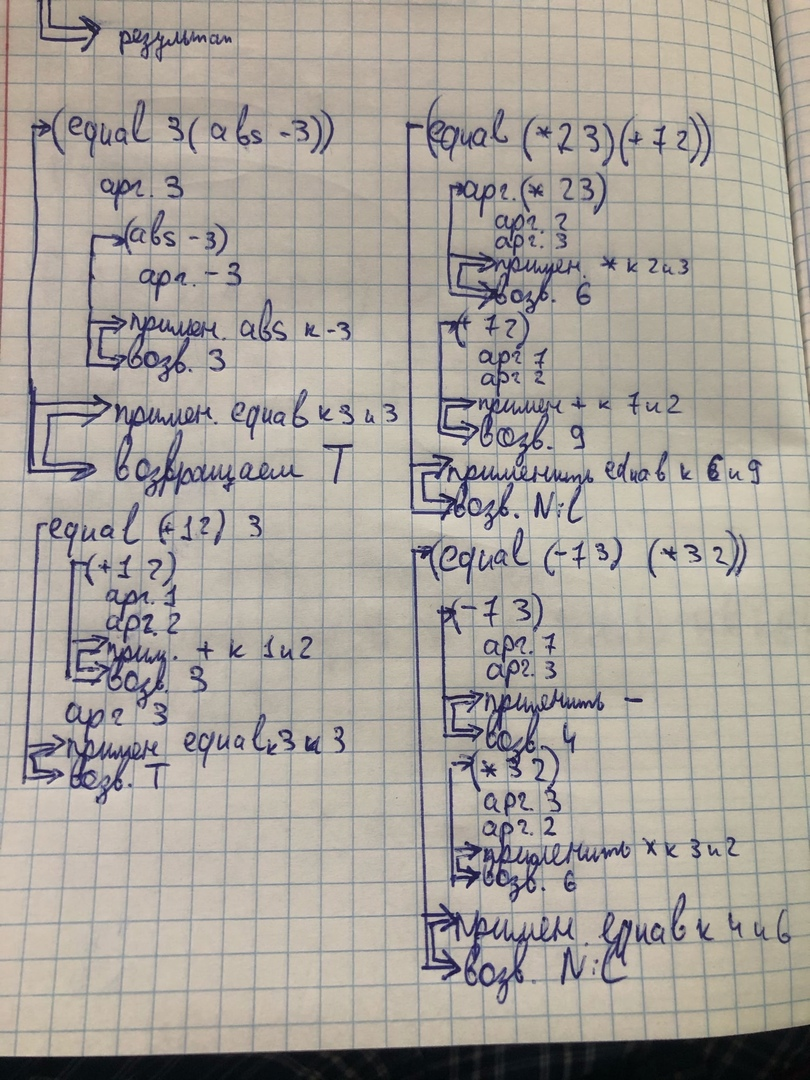 результат
(equal 3 (abs -3))
арг. 3
(abs -3)
арг. -3
примен. abs к -3
возв. 3
примен. equal к 3 и 3
возвращаем T
equal (+ 1 2) 3
(+ 1 2)
арг. 1
арг. 2
прим. + к 1 и 2
возв. 3
арг 3
примен equal к 3 и 3
возв. T
(equal (* 2 3) (+ 7 2))
арг. (* 2 3)
арг. 2
арг. 3
примен. * к 2 и 3
возв. 6
(+ 7 2)
арг 7
арг 2
примен + к 7 и 2
возв. 9
применить equal к 6 и 9
возв. Nil
(equal (- 7 3) (* 3 2))
(- 7 3)
арг. 7
арг. 3
применить -
возв. 4
(* 3 2)
арг. 3
арг. 2
применить * к 3 и 2
возв. 6
примен. equal к 4 и 6
возв. Nil